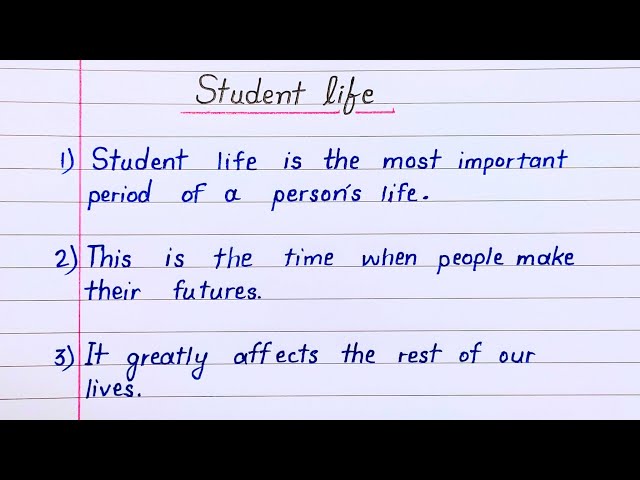 Student life
1) Student life is the most important
period of a person's life.
2) This is the time when people make
their futures.
3) It greatly affects the rest of our
lives.